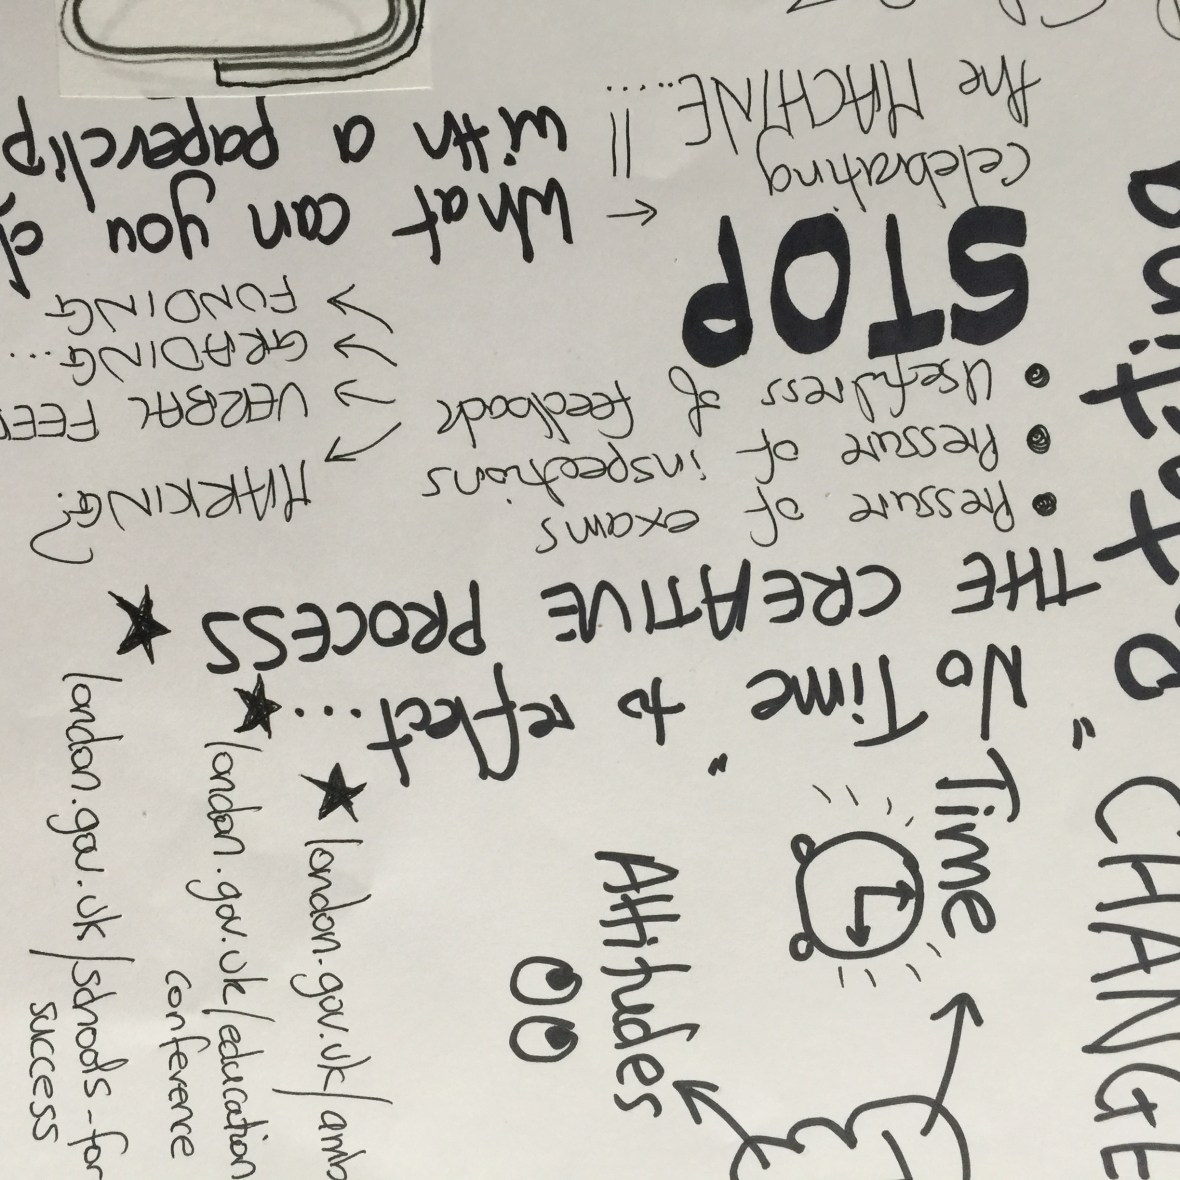 " No Time " to reflect...
THE CREATIVE PROCESS
Pressure of exams
Pressure of inspections
Usefulness of feedback
MARKING?
VERBAL FEE
GRADING...
FUNDING
STOP
celebrating
the MACHINE..... !!
what can you d
with a paperclip
Time
Attitudes
CHANGE
london.gov.uk/amb
london.gov.uk/education
conference
london.gov.uk/schools-for
success